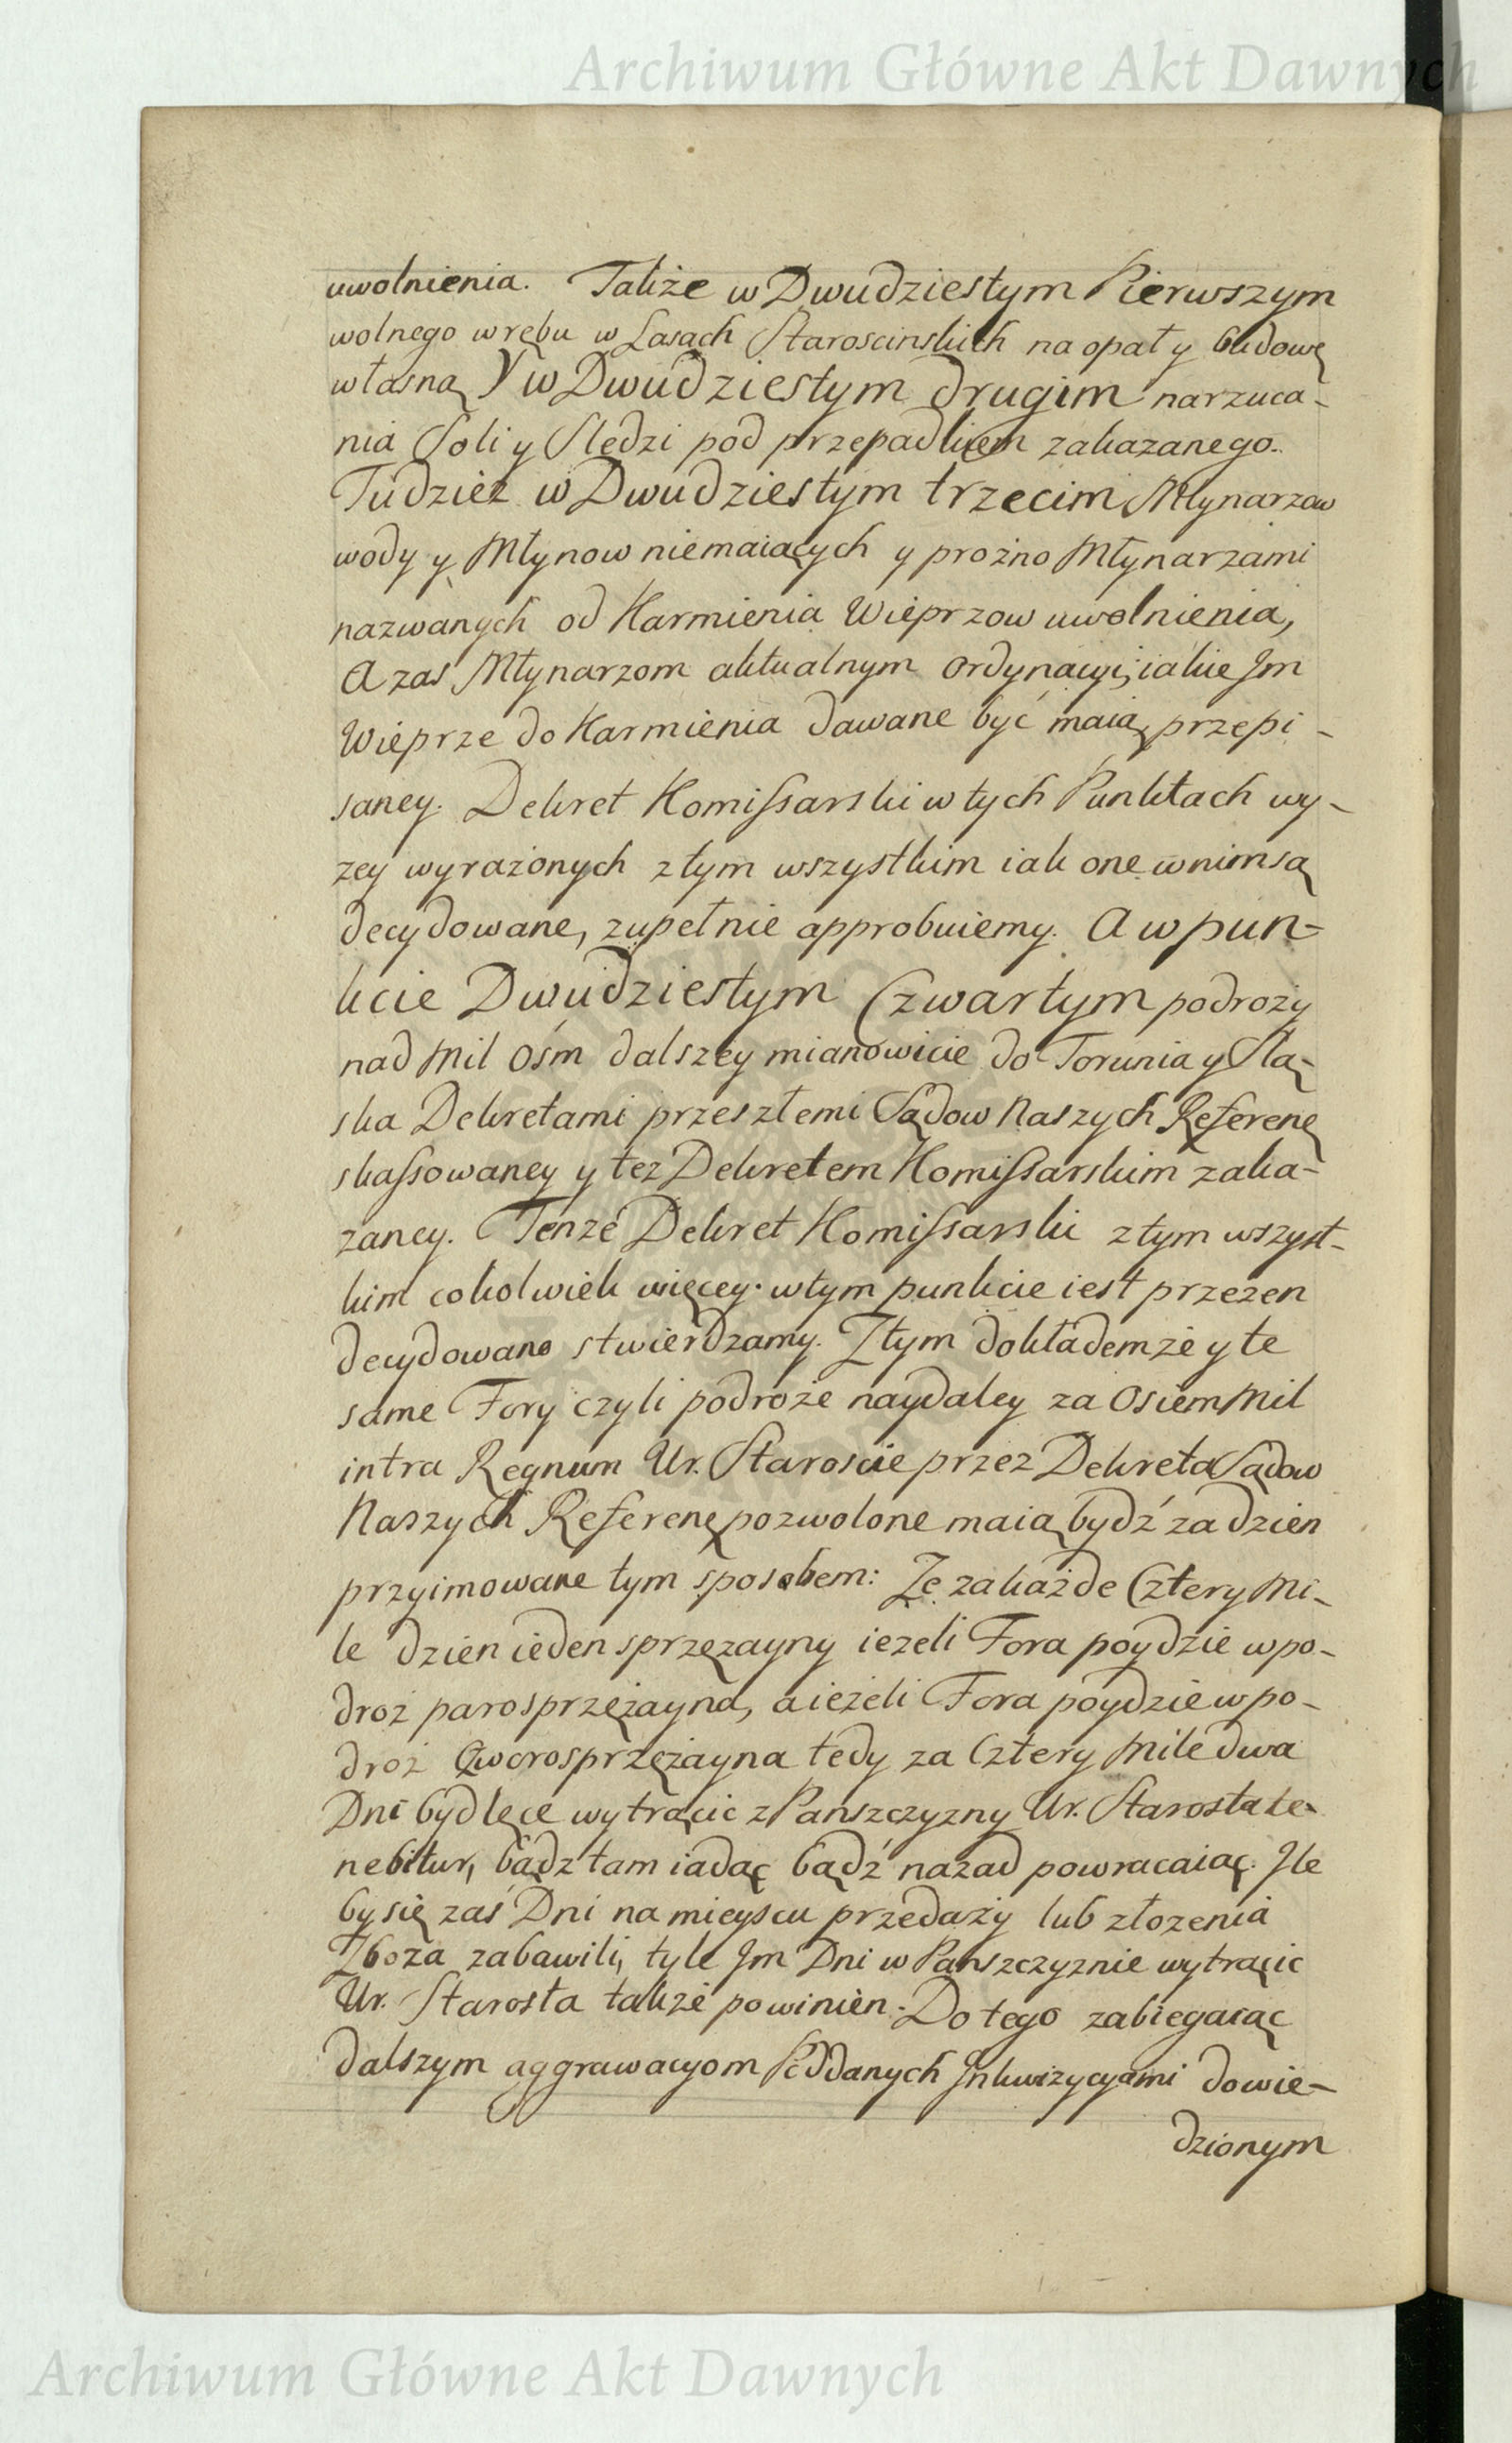 Archiwum Główne Akt Dawnych
uwolnienia. Takze w Dwudziestym Pierwszym
wolnego wrębu w Lasach Staroscinskich na opał y budowę
własną Y w Dwudziestym drugim narzuca-
nia Soli y Sledzi pod przepadkiem zakazanego.
Tudziez w Dwudziestym trzecim Młynarzow
wody y Młynow niemaiących y prożno Młynarzami
nazwanych od Karmienia Wieprzow uwolnienia,
A zas Młynarzom aktualnym ordynacyi, iakie Jm
Wieprze do Karmienia dawane być maią przepi-
saney. Dekret Komissarski w tych Punktach wy-
zey wyrażonych z tym wszystkim iak one w nim są
decydowane, zupełnie approbuiemy. A w pun-
kcie Dwudziestym Czwartym podroży
nad Mil ośm dalszey mianowicie do Torunia y Slą-
ska Dekretami przeszłemi Sądow Naszych Referenę
skassowaney y tez Dekretem Komissarskim zaka-
zaney. Tenze Dekret Komissarski z tym wszyst-
kim cokolwiek więcey w tym punkcie iest przezen
decydowano stwierdzamy. Z tym dokładem że y te
same Fory czyli podroże naydaley za Osiem Mil
intra Regnum Ur. Staroscie przez Dekreta Sądow
Naszych Referenę pozwolone maią bydź za dzien
przyimowane tym sposobem: Ze za każde Cztery Mi-
le dzien ieden sprzężayny iezeli Fora poydzie w po-
droż parosprzężayna, a ieżeli Fora poydzie w po-
droż Czworosprzężayna tedy za Cztery Mile dwa
Dni bydlęce wytrącic z Panszczyzny Ur. Starosta te-
nebitur, bądz tam iadąc bądź nazad powracaiąc. Jle
by się zaś Dni na mieyscu przedaży lub złozenia
Zboza zabawili, tyle Jm Dni w Panszczyznie wytrącic
Ur. Starosta takze powinien. Do tego zabiegaiąc
dalszym aggrawacyom Poddanych Jnkwizycyami dowie-
dzionym
Archiwum Główne Akt Dawnych